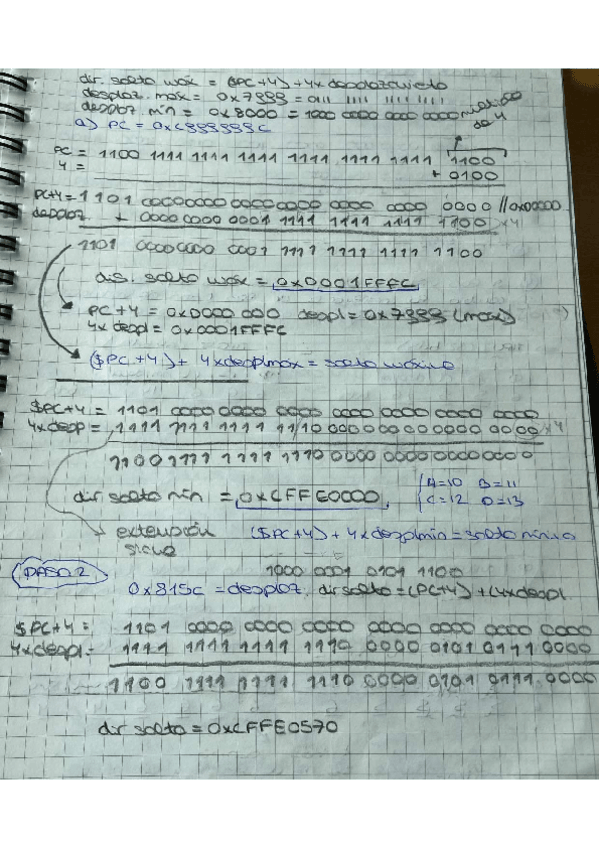 dir. salto máx = ($PC+4) + 4x desplazamiento
desplaz. máx = 0x7FFF = 0111 1111 1111 1111
desplaz mín = 0x8000 = 1000 0000 0000 0000 múltiplo de 4
a) PC = 0xCFFFFFFC
PC = 1100 1111 1111 1111 1111 1111 1111 1100
4 = + 0100
PC+4 = 1101 0000 0000 0000 0000 0000 0000 0000 // 0x00000
desploz + 0000 0000 0001 1111 1111 1111 1100 x4
1101 0000 0000 0001 1111 1111 1111 1100
dir. salto máx = 0xD001FFFC
PC+4 = 0xD000 000 despl = 0x7FFF (max)
4x despl = 0x0001FFFC
($PC+4) + 4xdesplmax = salto máximo
$PC+4 = 1101 0000 0000 0000 0000 0000 0000 0000
4xdesp = 1111 1111 1111 1110 0000 0000 0000 0000 x4
1100 1111 1111 1110 0000 0000 0000 0000
dir salto mín = 0xCFFE0000 A=10 B=11
C=12 D=13
extensión signo ($PC+4) + 4xdesplmin = salto mínimo
PASO 2 1000 0001 0101 1100
0x815C = desploz, dir salto = (PC+4) + (4xdespl
$PC+4 = 1101 0000 0000 0000 0000 0000 0000 0000
4xdespl = 1111 1111 1111 1110 0000 0101 0111 0000
1100 1111 1111 1110 0000 0101 0111 0000
dir salto = 0xCFFE0570